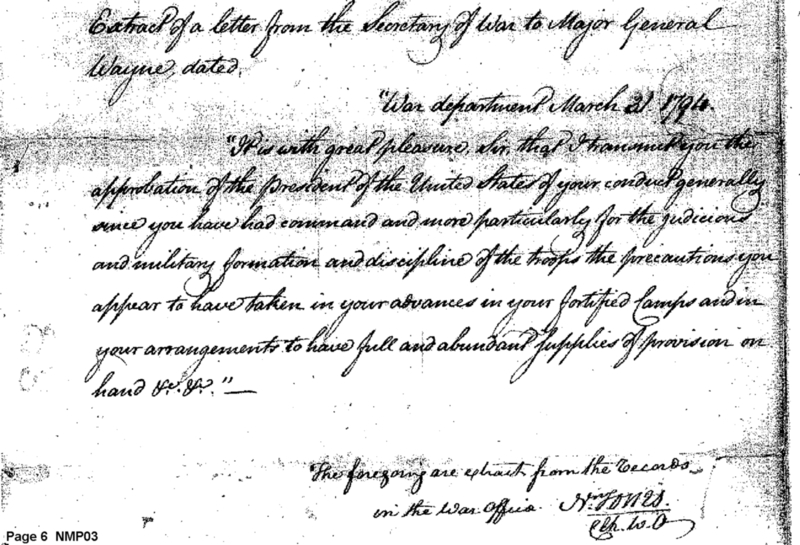 Extract of a letter from the Secretary of War to Major General
Wayne, dated,
"War department March 31 1794.
"It is with great pleasure, Sir, that I transmit you the
approbation of the President of the United States of your conduct generally
since you have had command and more particularly for the judicious
and military formation and discipline of the troops the precautions you
appear to have taken in your advances in your fortified Camps and in
your arrangements to have full and abundant supplies of provision on
hand &c. &c." —
The foregoing are extracts from the records
in the War Office. Wm Jones.
Ch. W. O
Page 6 NMP03